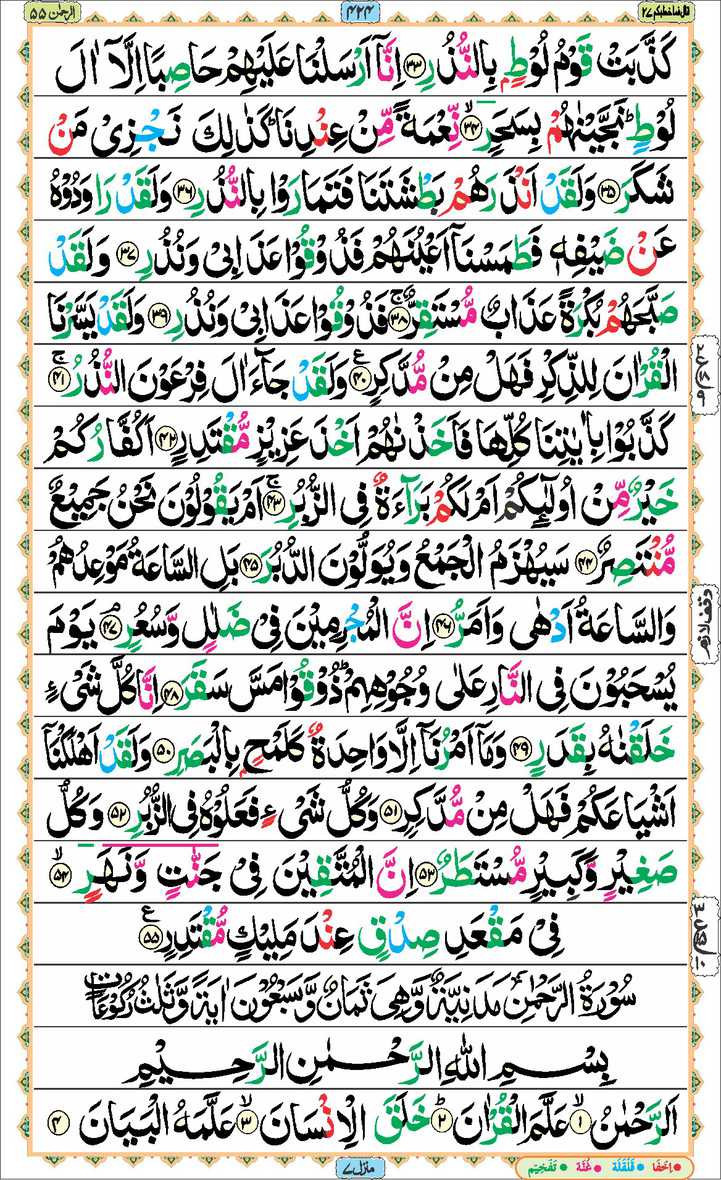 قال فما خطبكم ۲۷
۴۲۴
الرحمٰن ۵۵
كَذَّبَتْ قَوْمُ لُوْطٍۭ بِالنُّذُرِ ۳۳ اِنَّاۤ اَرْسَلْنَا عَلَيْهِمْ حَاصِبًا اِلَّاۤ اٰلَ
لُوْطٍ ؕ نَجَّيْنٰهُمْ بِسَحَرٍ ۙ ۳۴ نِّعْمَةً مِّنْ عِنْدِنَا ؕ كَذٰلِكَ نَجْزِىْ مَنْ
شَكَرَ ۳۵ وَلَقَدْ اَنْذَرَهُمْ بَطْشَتَنَا فَتَمَارَوْا بِالنُّذُرِ ۳۶ وَلَقَدْ رَاوَدُوْهُ
عَنْ ضَيْفِهٖ فَطَمَسْنَاۤ اَعْيُنَهُمْ فَذُوْقُوْا عَذَابِىْ وَنُذُرِ ۳۷ وَلَقَدْ
صَبَّحَهُمْ بُكْرَةً عَذَابٌ مُّسْتَقِرٌّ ۚ ۳۸ فَذُوْقُوْا عَذَابِىْ وَنُذُرِ ۳۹ وَلَقَدْ يَسَّرْنَا
الْقُرْاٰنَ لِلذِّكْرِ فَهَلْ مِنْ مُّدَّكِرٍ ۴۰ ع وَلَقَدْ جَآءَ اٰلَ فِرْعَوْنَ النُّذُرُ ۚ ۴۱
كَذَّبُوْا بِاٰيٰتِنَا كُلِّهَا فَاَخَذْنٰهُمْ اَخْذَ عَزِيْزٍ مُّقْتَدِرٍ ۴۲ اَكُفَّارُكُمْ
خَيْرٌ مِّنْ اُولٰٓئِكُمْ اَمْ لَكُمْ بَرَآءَةٌ فِى الزُّبُرِ ۚ ۴۳ اَمْ يَقُوْلُوْنَ نَحْنُ جَمِيْعٌ
مُّنْتَصِرٌ ۴۴ سَيُهْزَمُ الْجَمْعُ وَيُوَلُّوْنَ الدُّبُرَ ۴۵ بَلِ السَّاعَةُ مَوْعِدُهُمْ
وَالسَّاعَةُ اَدْهٰى وَاَمَرُّ ۴۶ اِنَّ الْمُجْرِمِيْنَ فِىْ ضَلٰلٍ وَّسُعُرٍ ۘ ۴۷ يَوْمَ
يُسْحَبُوْنَ فِى النَّارِ عَلٰى وُجُوْهِهِمْ ؕ ذُوْقُوْا مَسَّ سَقَرَ ۴۸ اِنَّا كُلَّ شَىْءٍ
خَلَقْنٰهُ بِقَدَرٍ ۴۹ وَمَاۤ اَمْرُنَاۤ اِلَّا وَاحِدَةٌ كَلَمْحٍۭ بِالْبَصَرِ ۵۰ وَلَقَدْ اَهْلَكْنَاۤ
اَشْيَاعَكُمْ فَهَلْ مِنْ مُّدَّكِرٍ ۵۱ وَكُلُّ شَىْءٍ فَعَلُوْهُ فِى الزُّبُرِ ۵۲ وَكُلُّ
صَغِيْرٍ وَّكَبِيْرٍ مُّسْتَطَرٌ ۵۳ اِنَّ الْمُتَّقِيْنَ فِىْ جَنّٰتٍ وَّنَهَرٍ ۙ ۵۴
فِىْ مَقْعَدِ صِدْقٍ عِنْدَ مَلِيْكٍ مُّقْتَدِرٍ ۵۵ ع
سُوْرَةُ الرَّحْمٰنِ مَدَنِيَّةٌ وَّهِىَ ثَمَانٌ وَّسَبْعُوْنَ اٰيَةً وَّثَلٰثُ رُكُوْعَاتٍ
بِسْمِ اللّٰهِ الرَّحْمٰنِ الرَّحِيْمِ
اَلرَّحْمٰنُ ۙ ۱ عَلَّمَ الْقُرْاٰنَ ؕ ۲ خَلَقَ الْاِنْسَانَ ۙ ۳ عَلَّمَهُ الْبَيَانَ ۴
وقف لازم
منزل ۷
اِخفَا قَلْقَلَة غُنَّة تَفْخِيْم